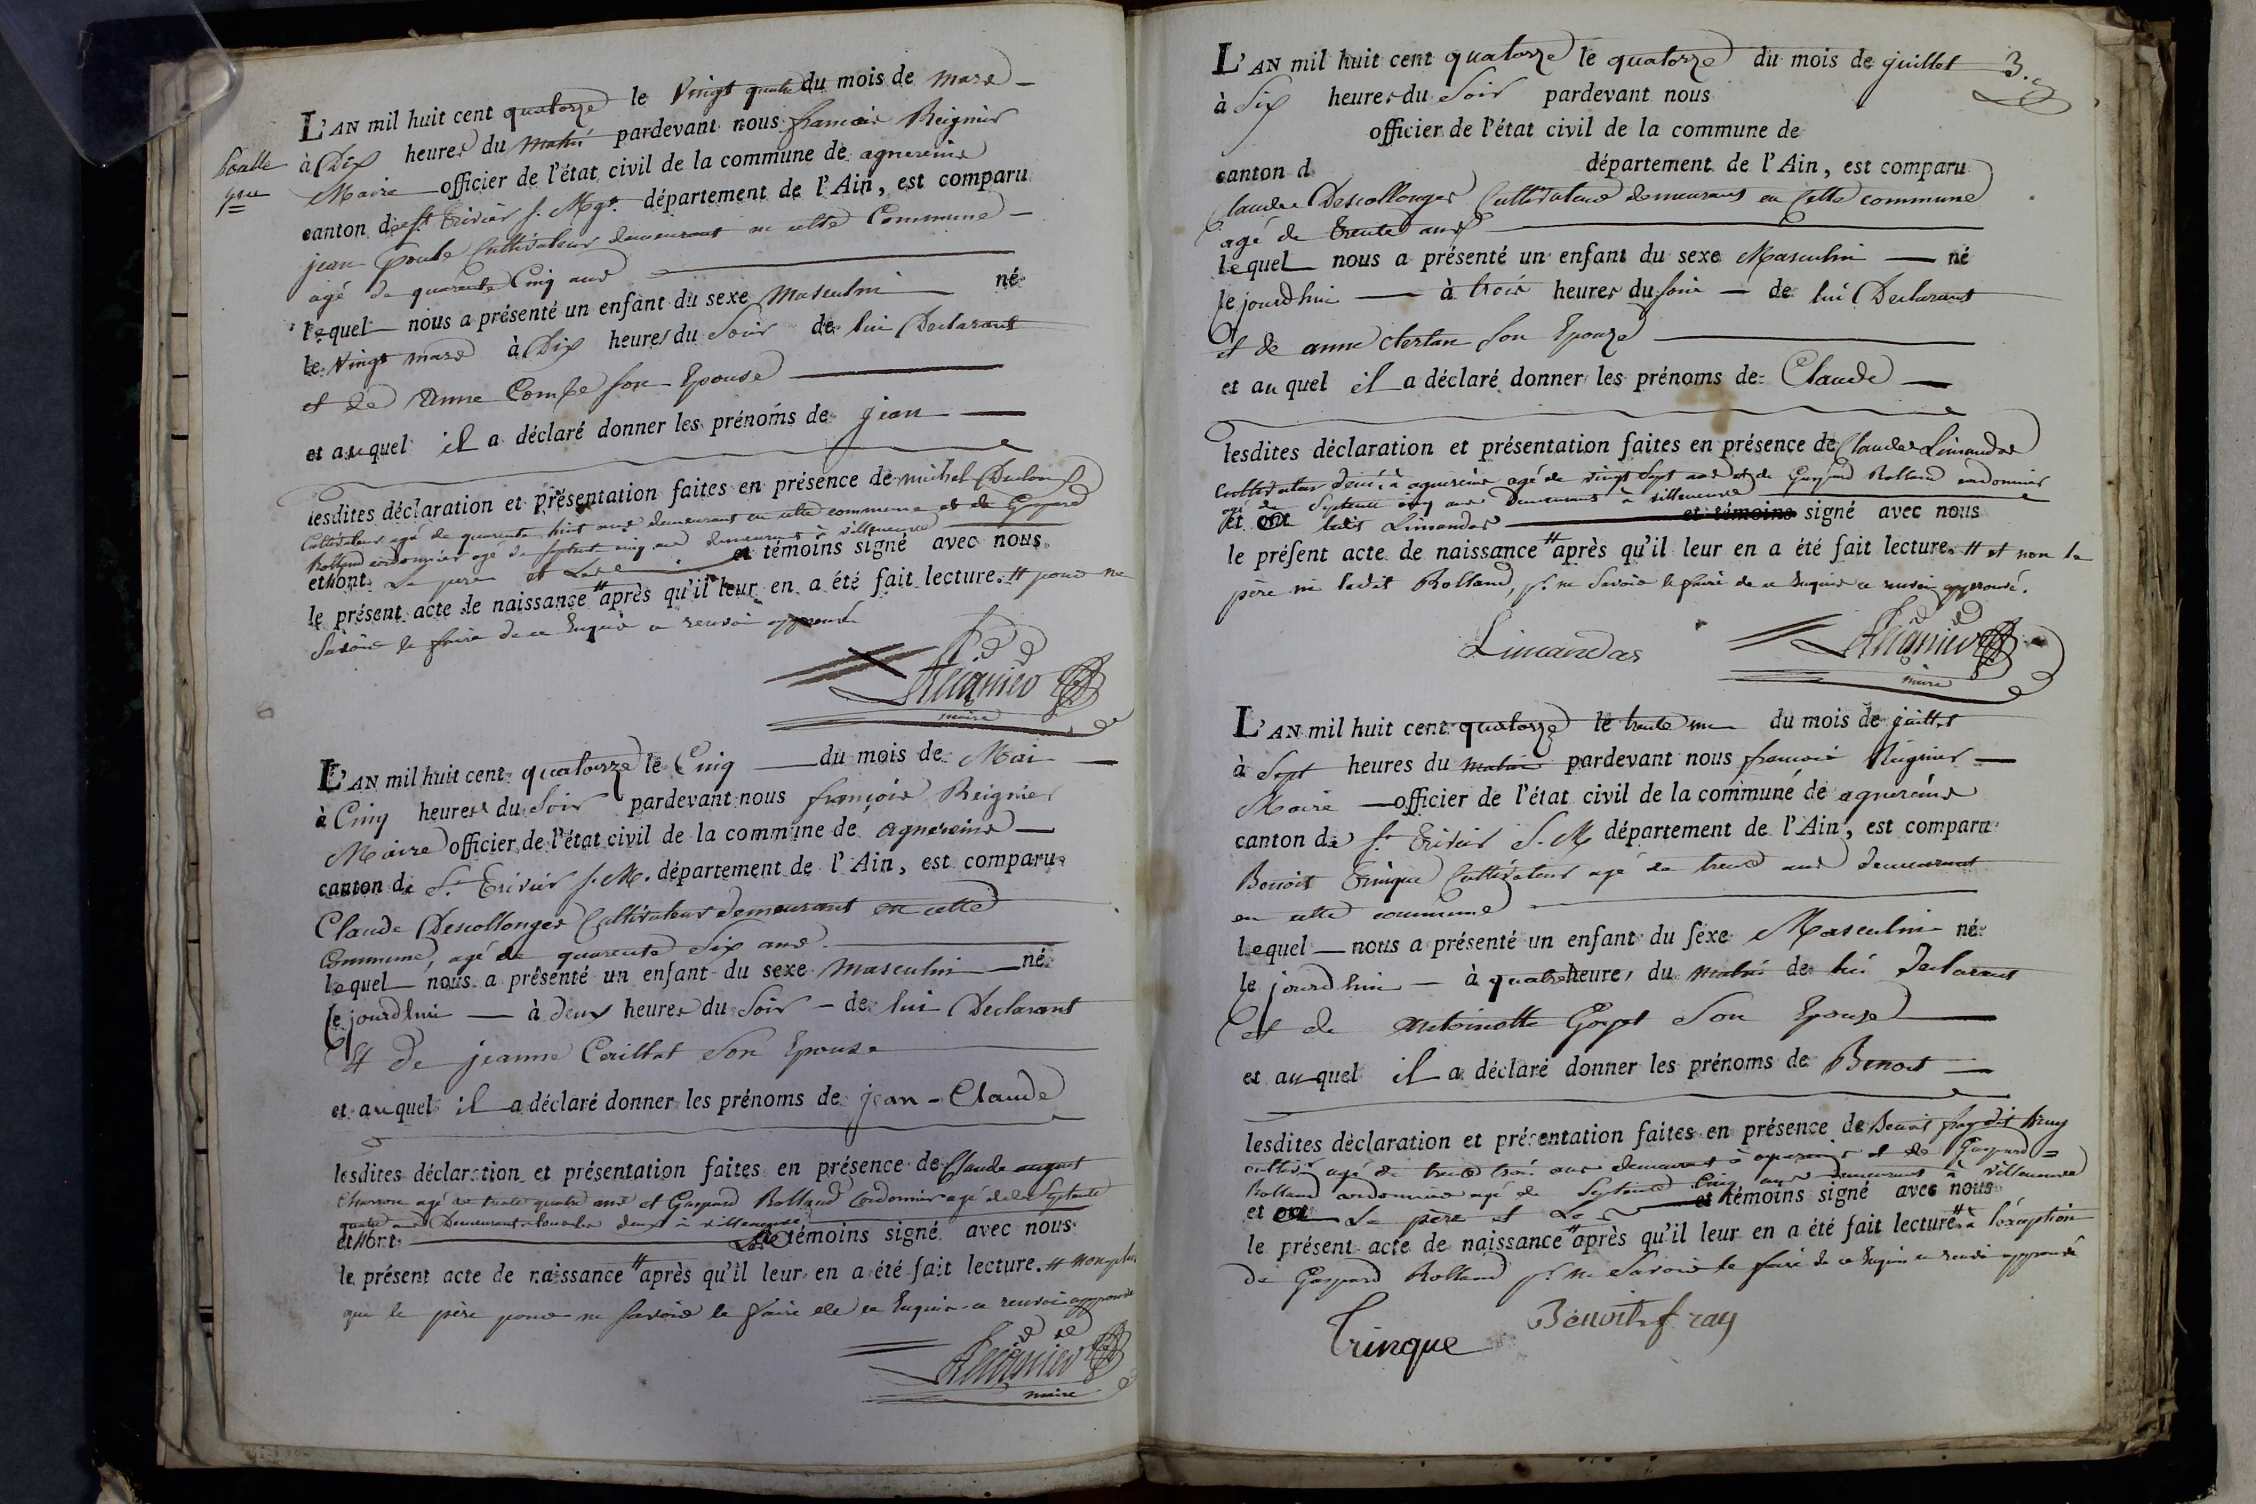 L'AN mil huit cent quatorze le Vingt quatre du mois de mars
à Dix heures du matin pardevant nous francois Reignier
Maire officier de l'état civil de la commune de agnereins
canton de St Trivier s. Mgn. département de l'Ain, est comparu
jean Poule Cultivateur demeurant en cette Commune
agé de quarente Cinq ans
lequel nous a présenté un enfant du sexe masculin né
le Vingt mars à Dix heures du Soir de lui Declarant
et de Anne Combe son Epouse
et auquel il a déclaré donner les prénoms de jean
lesdites déclaration et présentation faites en présence de michel
Cultivateur agé de quarente huit ans demeurant en cette commune et de Gaspard
Rolland cordonnier agé de septente cinq ans demeurant à villeneuve
et ont Le pere et Les et témoins signé avec nous
le présent acte de naissance # après qu'il leur en a été fait lecture. # pour ne
Savoir le faire de ce Enquis ce renvoi approuvé
Reignier
maire
L'AN mil huit cent quatorze le Cinq du mois de Mai
à Cinq heures du Soir pardevant nous françois Reignier
Maire officier de l'état civil de la commune de agnereins
canton de St Trivier s. M. département de l'Ain, est comparu
Claude Descollonges Cultivateur demeurant en cette
Commune, agé de quarente Six ans
lequel nous a présenté un enfant du sexe masculin né
le jourdhui à deux heures du Soir de lui Declarant
et de jeanne Cerillat son Epouse
et auquel il a déclaré donner les prénoms de jean-Claude
lesdites déclaration et présentation faites en présence de Claude august
Charron agé de trente quatre ans et Gaspard Rolland Cordonnier agé de Septente
quatre ans Demeurant tous les deux à villeneuve
et #ont Les témoins signé avec nous
le présent acte de naissance # après qu'il leur en a été fait lecture. # non plus
que le père pour ne savoir le faire de ce Enquis ce renvoi approuvé
Reignier
maire
3.e
L'AN mil huit cent quatorze le quatorze du mois de juillet
à Six heures du Soir pardevant nous
officier de l'état civil de la commune de
canton d département de l'Ain, est comparu
Claude Descollonges Cultivateur demeurant en Cette commune
agé de trente ans
lequel nous a présenté un enfant du sexe Masculin né
le jourdhui à trois heures du soir de lui Declarant
et de anne clertan son Epouze
et auquel il a déclaré donner les prénoms de Claude
lesdites déclaration et présentation faites en présence de Claude Limandas
Cultivateur à agnereins agé de vingt Sept ans et de Gaspard Rolland cordonnier
agé de Septente cinq ans Demeurant à villeneuve
et ont ledit Limandas et témoins signé avec nous
le présent acte de naissance # après qu'il leur en a été fait lecture. # et non le
père ni ledit Rolland, pr. ne Savoir le faire de ce Enquis ce renvoi approuvé.
Limandas Reignier
maire
L'AN mil huit cent quatorze le trente un du mois de juillet
à Sept heures du matin pardevant nous francois Reignier
Maire officier de l'état civil de la commune de agnereins
canton de St Trivier S. M département de l'Ain, est comparu
Benoit Trinque Cultivateur agé de trente ans demeurant
en cette commune
lequel nous a présenté un enfant du sexe Masculin né
le jourdhui à quatre heures du matin de lui Declarant
et de Antoinette Goyet Son Epouze
et auquel il a déclaré donner les prénoms de Benoit
lesdites déclaration et présentation faites en présence de Benoit fray dit
cultivr agé de trente trois ans demeurant à agnereins et de Gaspard
Rolland cordonnier agé de Septente Cinq ans demeurant à villeneuve
et ont Le père et Les et témoins signé avec nous
le présent acte de naissance # après qu'il leur en a été fait lecture # à l'exception
de Gaspard Rolland pr. ne Savoir le faire de ce Enquis ce renvoi approuvé
Trinque Benoit fray